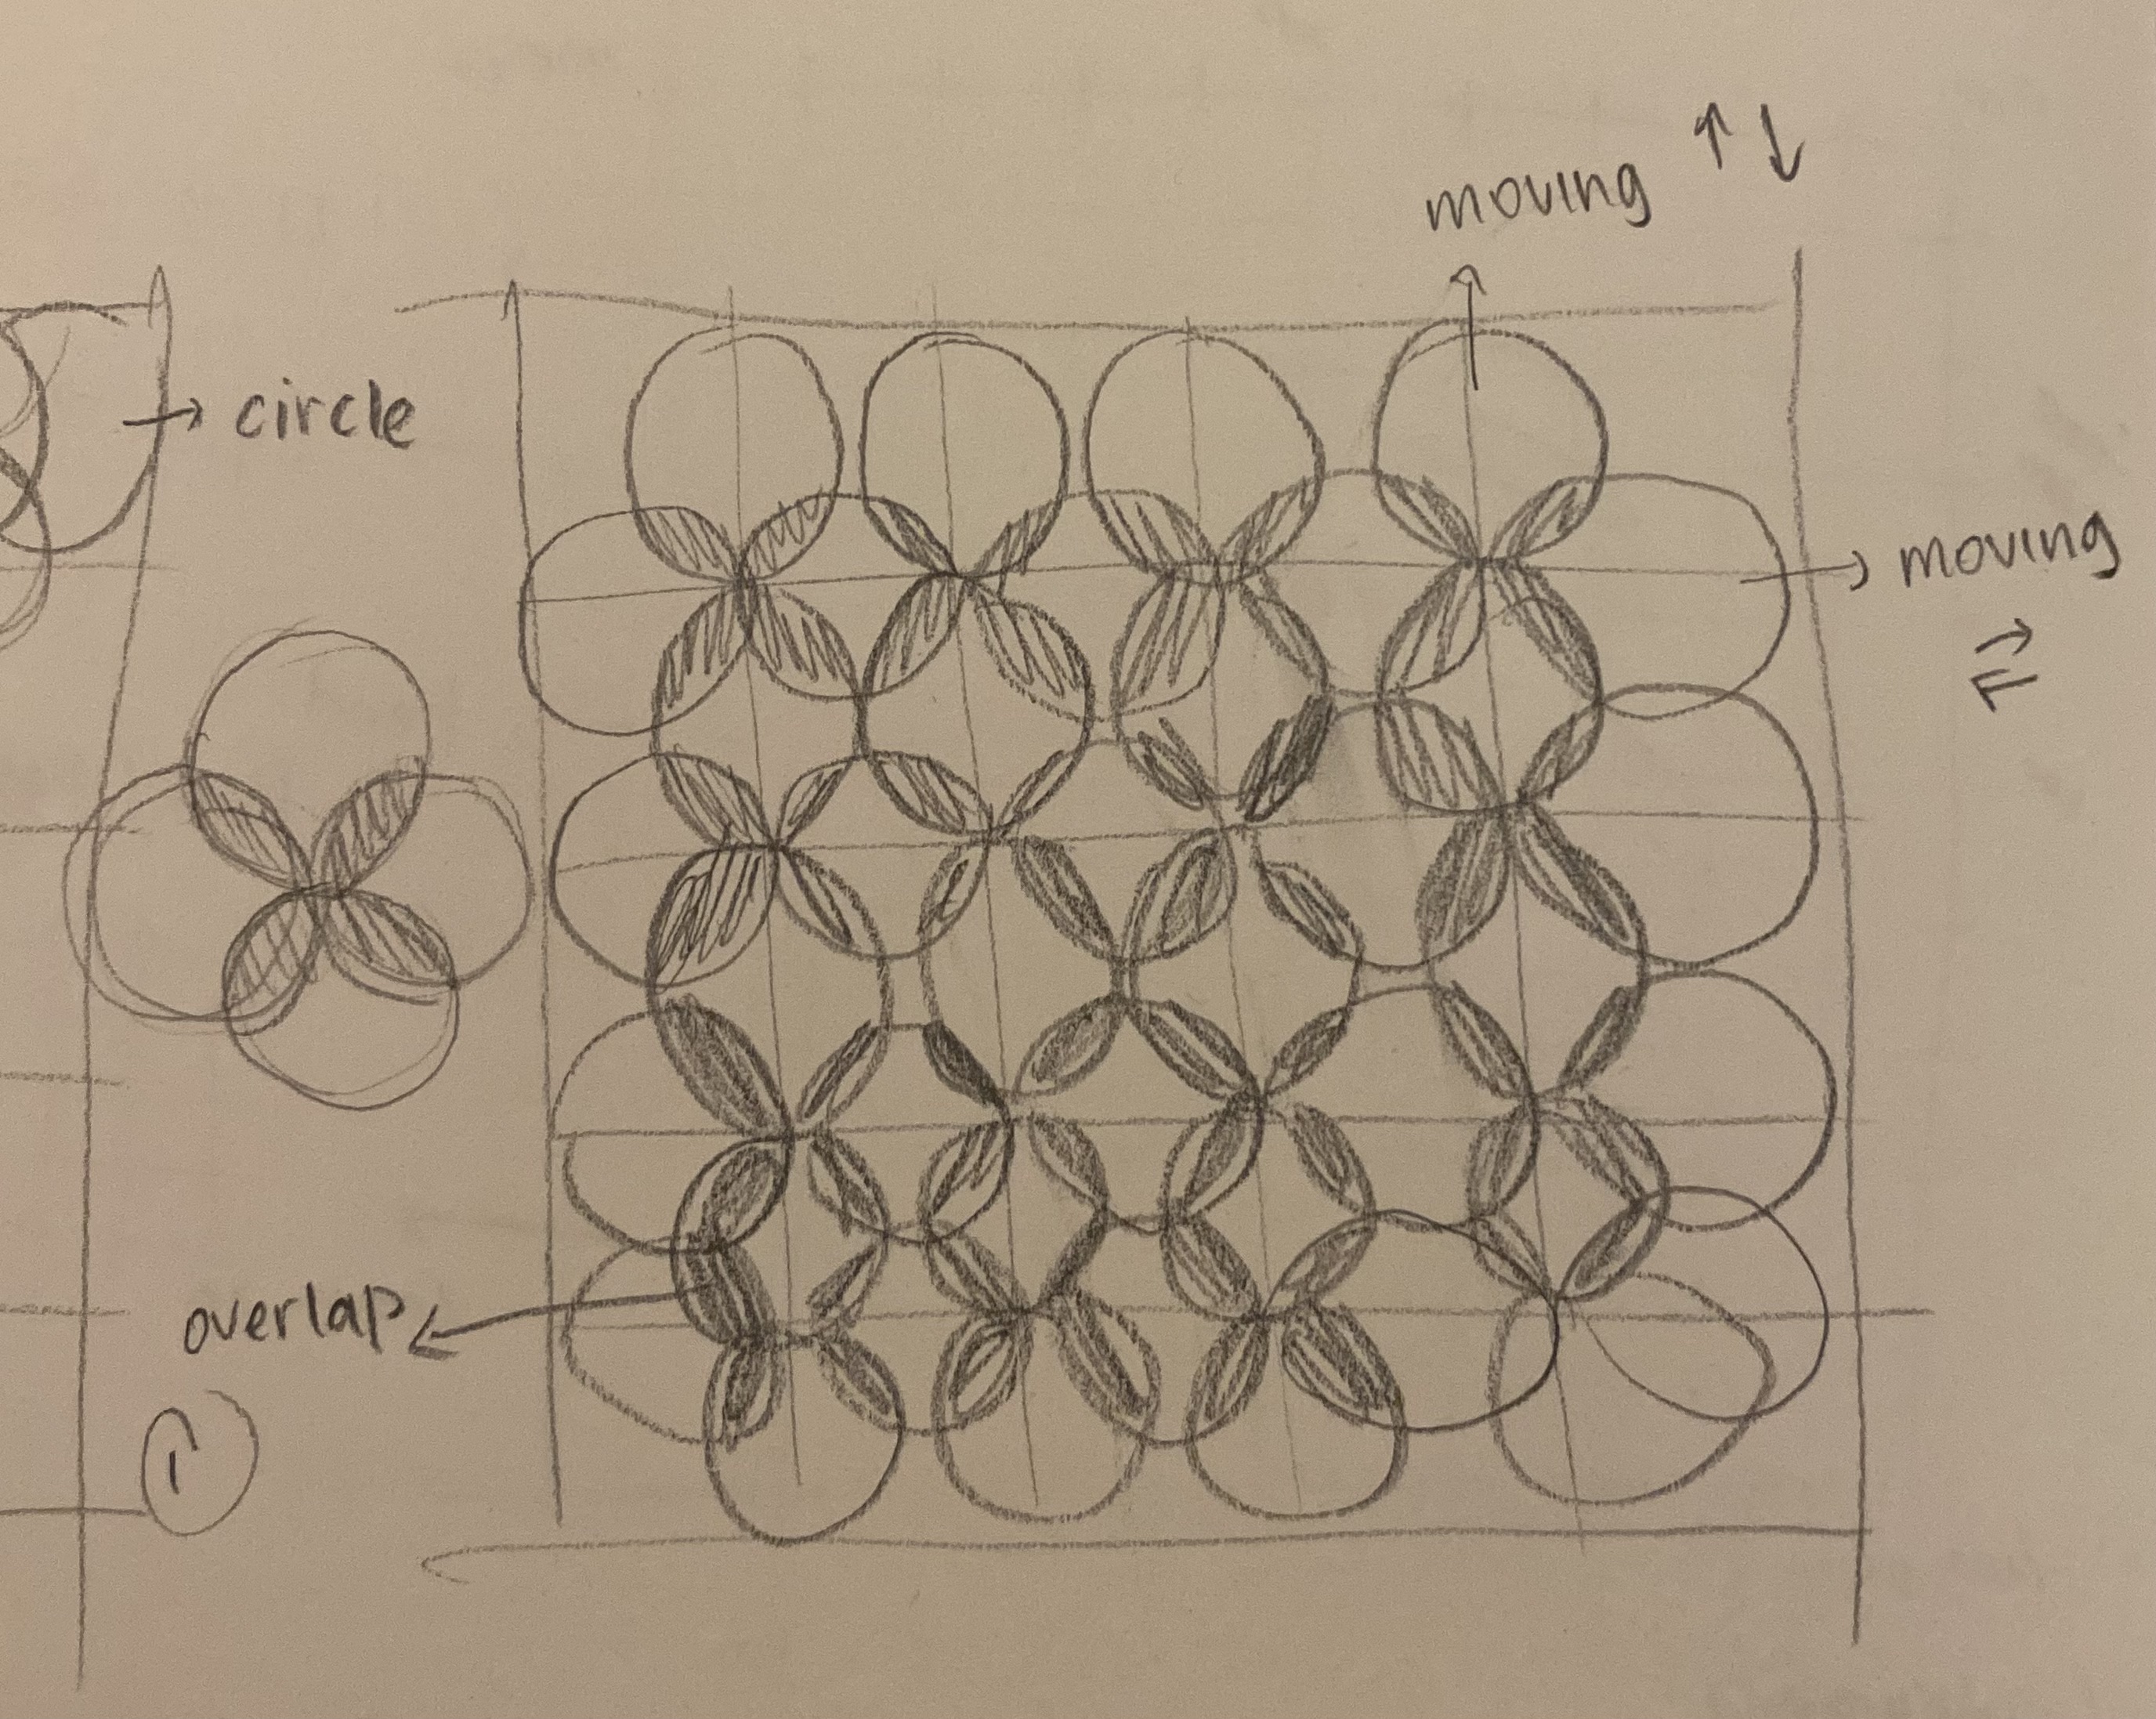 moving ↑ ↓
circle
moving
overlap
1